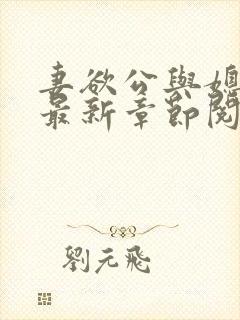 妻欲公與媳
最新章節閱
劉元飛